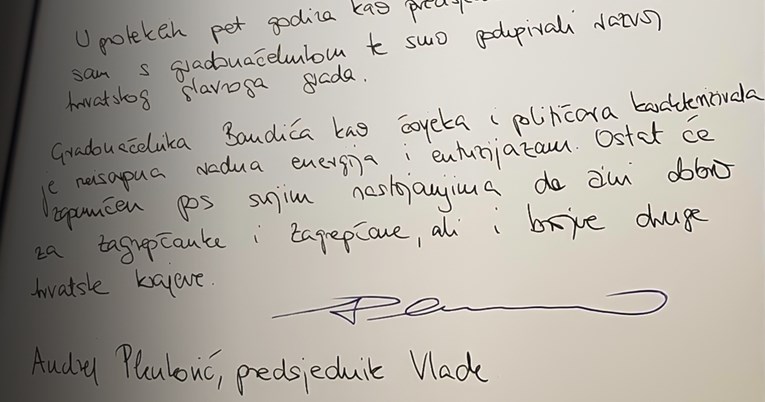 U proteklih pet godina kao
sam s gradonačelnikom te smo podupirali razvoj
hrvatskog glavnoga grada.
Gradonačelnika Bandića kao čovjeka i političara karakterizirala
je neiscrpna radna energija i entuzijazam. Ostat će
zapamćen po svojim nastojanjima da čini dobro
za Zagrepčanke i Zagrepčane, ali i brojne druge
hrvatske krajeve.
Andrej Plenković, predsjednik Vlade